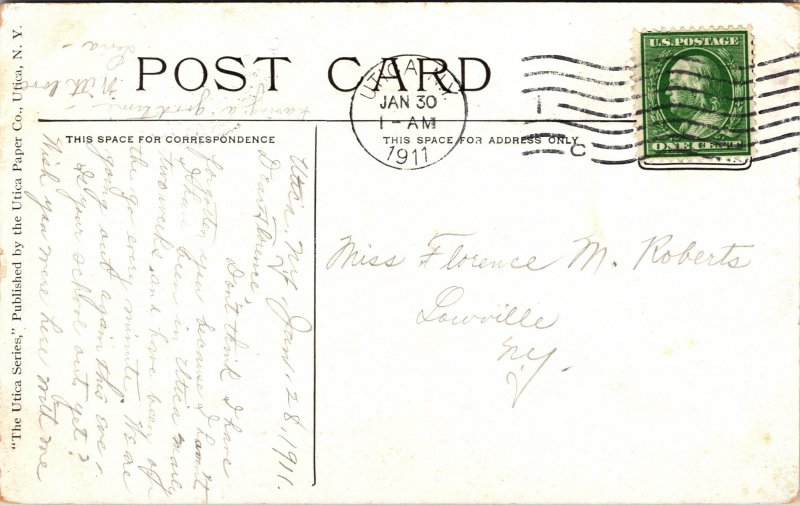 "The Utica Series," Published by the Utica Paper Co., Utica, N. Y.
POST CARD
THIS SPACE FOR CORRESPONDENCE
THIS SPACE FOR ADDRESS ONLY
UTICA N.Y.
JAN 30
1 - AM
1911
1
C
U.S. POSTAGE
ONE CENT
Miss Florence M. Roberts
Lowville
N.Y.
Utica, N.Y. Jan. 28, 1911.
Dear Florence,
Don't think I have
forgotten you because I haven't
I have been in Utica nearly
two weeks and have been on
the go every minute. We are
going out again this eve -
Is your school out yet?
Wish you were here with me
having a good time -
With love
Lena -